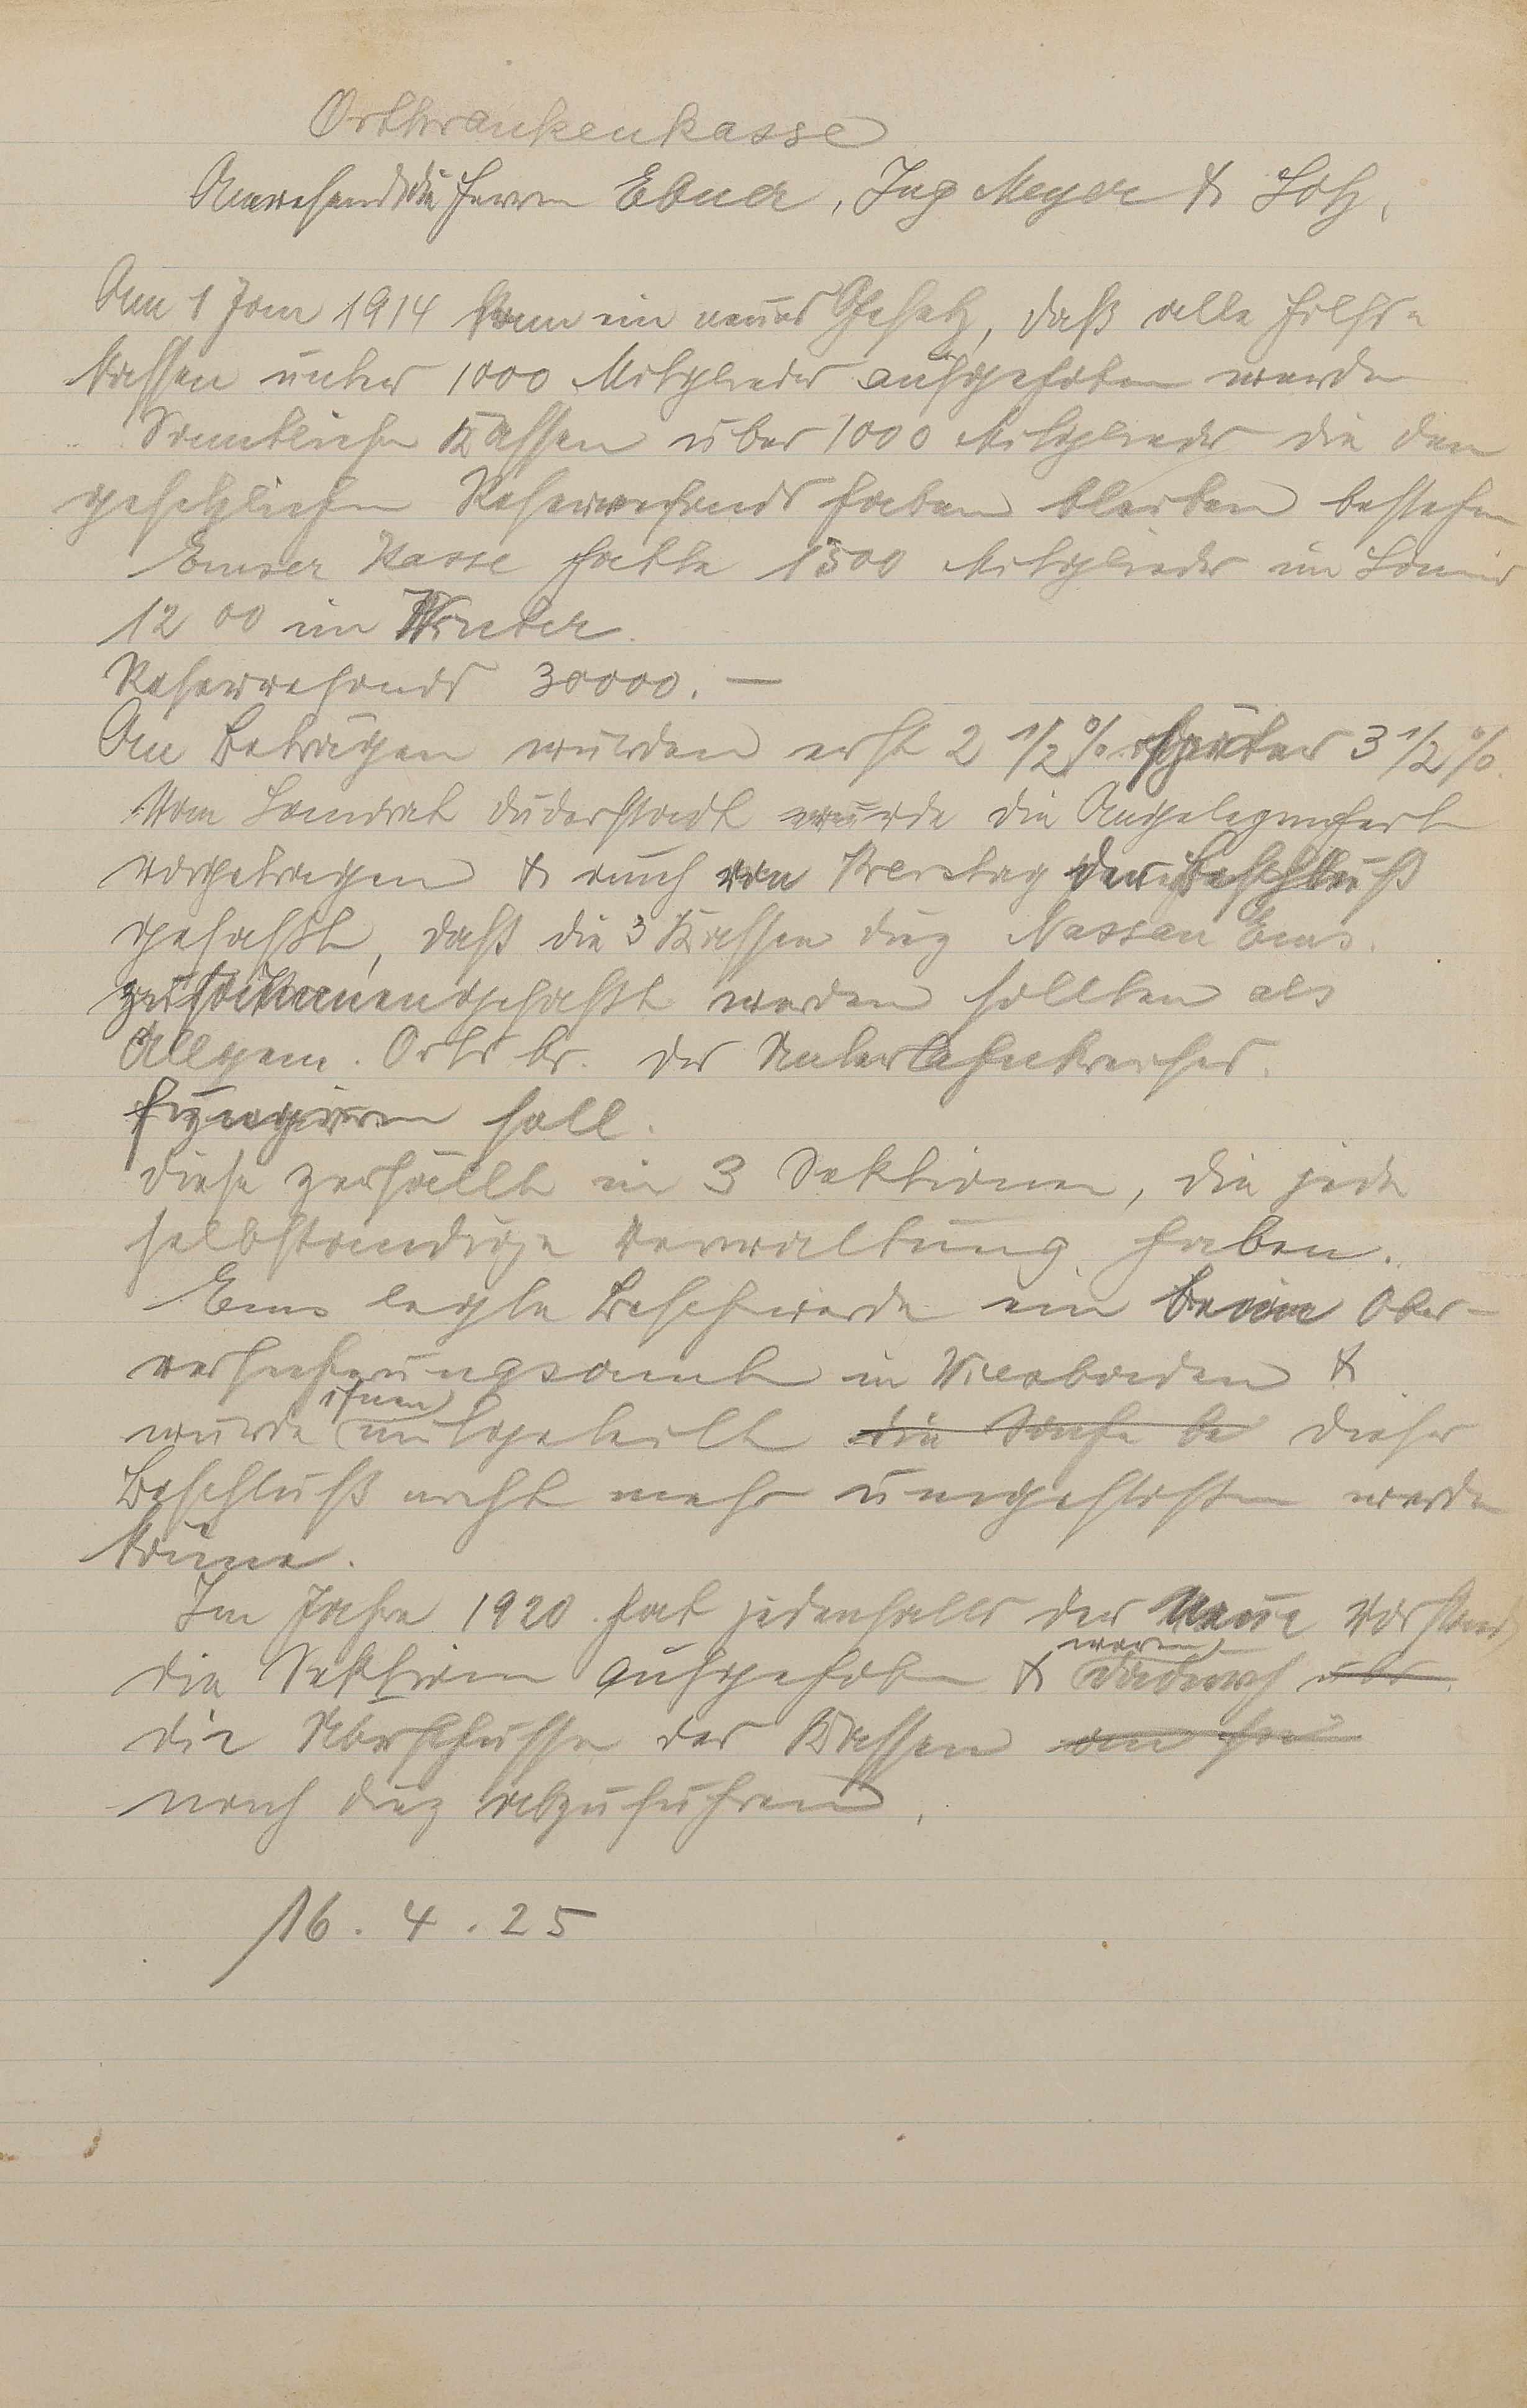 Ortkrankenkasse
Anwesend die Herren Ebner, Ing Meyer & Lotz,
Am 1 Jan 1914 kam ein neues Gesetz, daß alle Hilfs-
kassen unter 1000 Mitglieder aufgehoben werden
Sämtliche Kassen über 1000 Mitglieder die den
gesetzlichen Reservefonds haben bleiben bestehen
Emser Kasse hatte 1500 Mitglieder im Sommer
1200 im Winter.
Reservefonds 30000.—
An Beträgen wurden erst 2 1/2 % später 3 1/2 %.
Vom Landrat Duderstadt wurde die Angelegenheit
vorgetragen & auch von Kreistag der Beschluß
gefaßt, daß die 3 Kassen Diez Nassau Ems.
zusammengefaßt werden sollten als
Allgem. Orts kr. des Unterlahnkreises.
fungieren soll.
diese zerfällt in 3 Sektionen, die jede
selbständige Verwaltung haben.
Ems legte Beschwerde ein beim Ober-
versicherungsamt in Wiesbaden &
wurde ihnen mitgeteilt die Sache be dieser
Beschluß nicht mehr umgestoßen werden
könne.
Im Jahre 1920 hat jedenfalls der neue Vorstand
die Sektionen aufgehoben & waren dadurch
die Überschüsse der Kassen
nach Diez abzuführen.
16. 4. 25